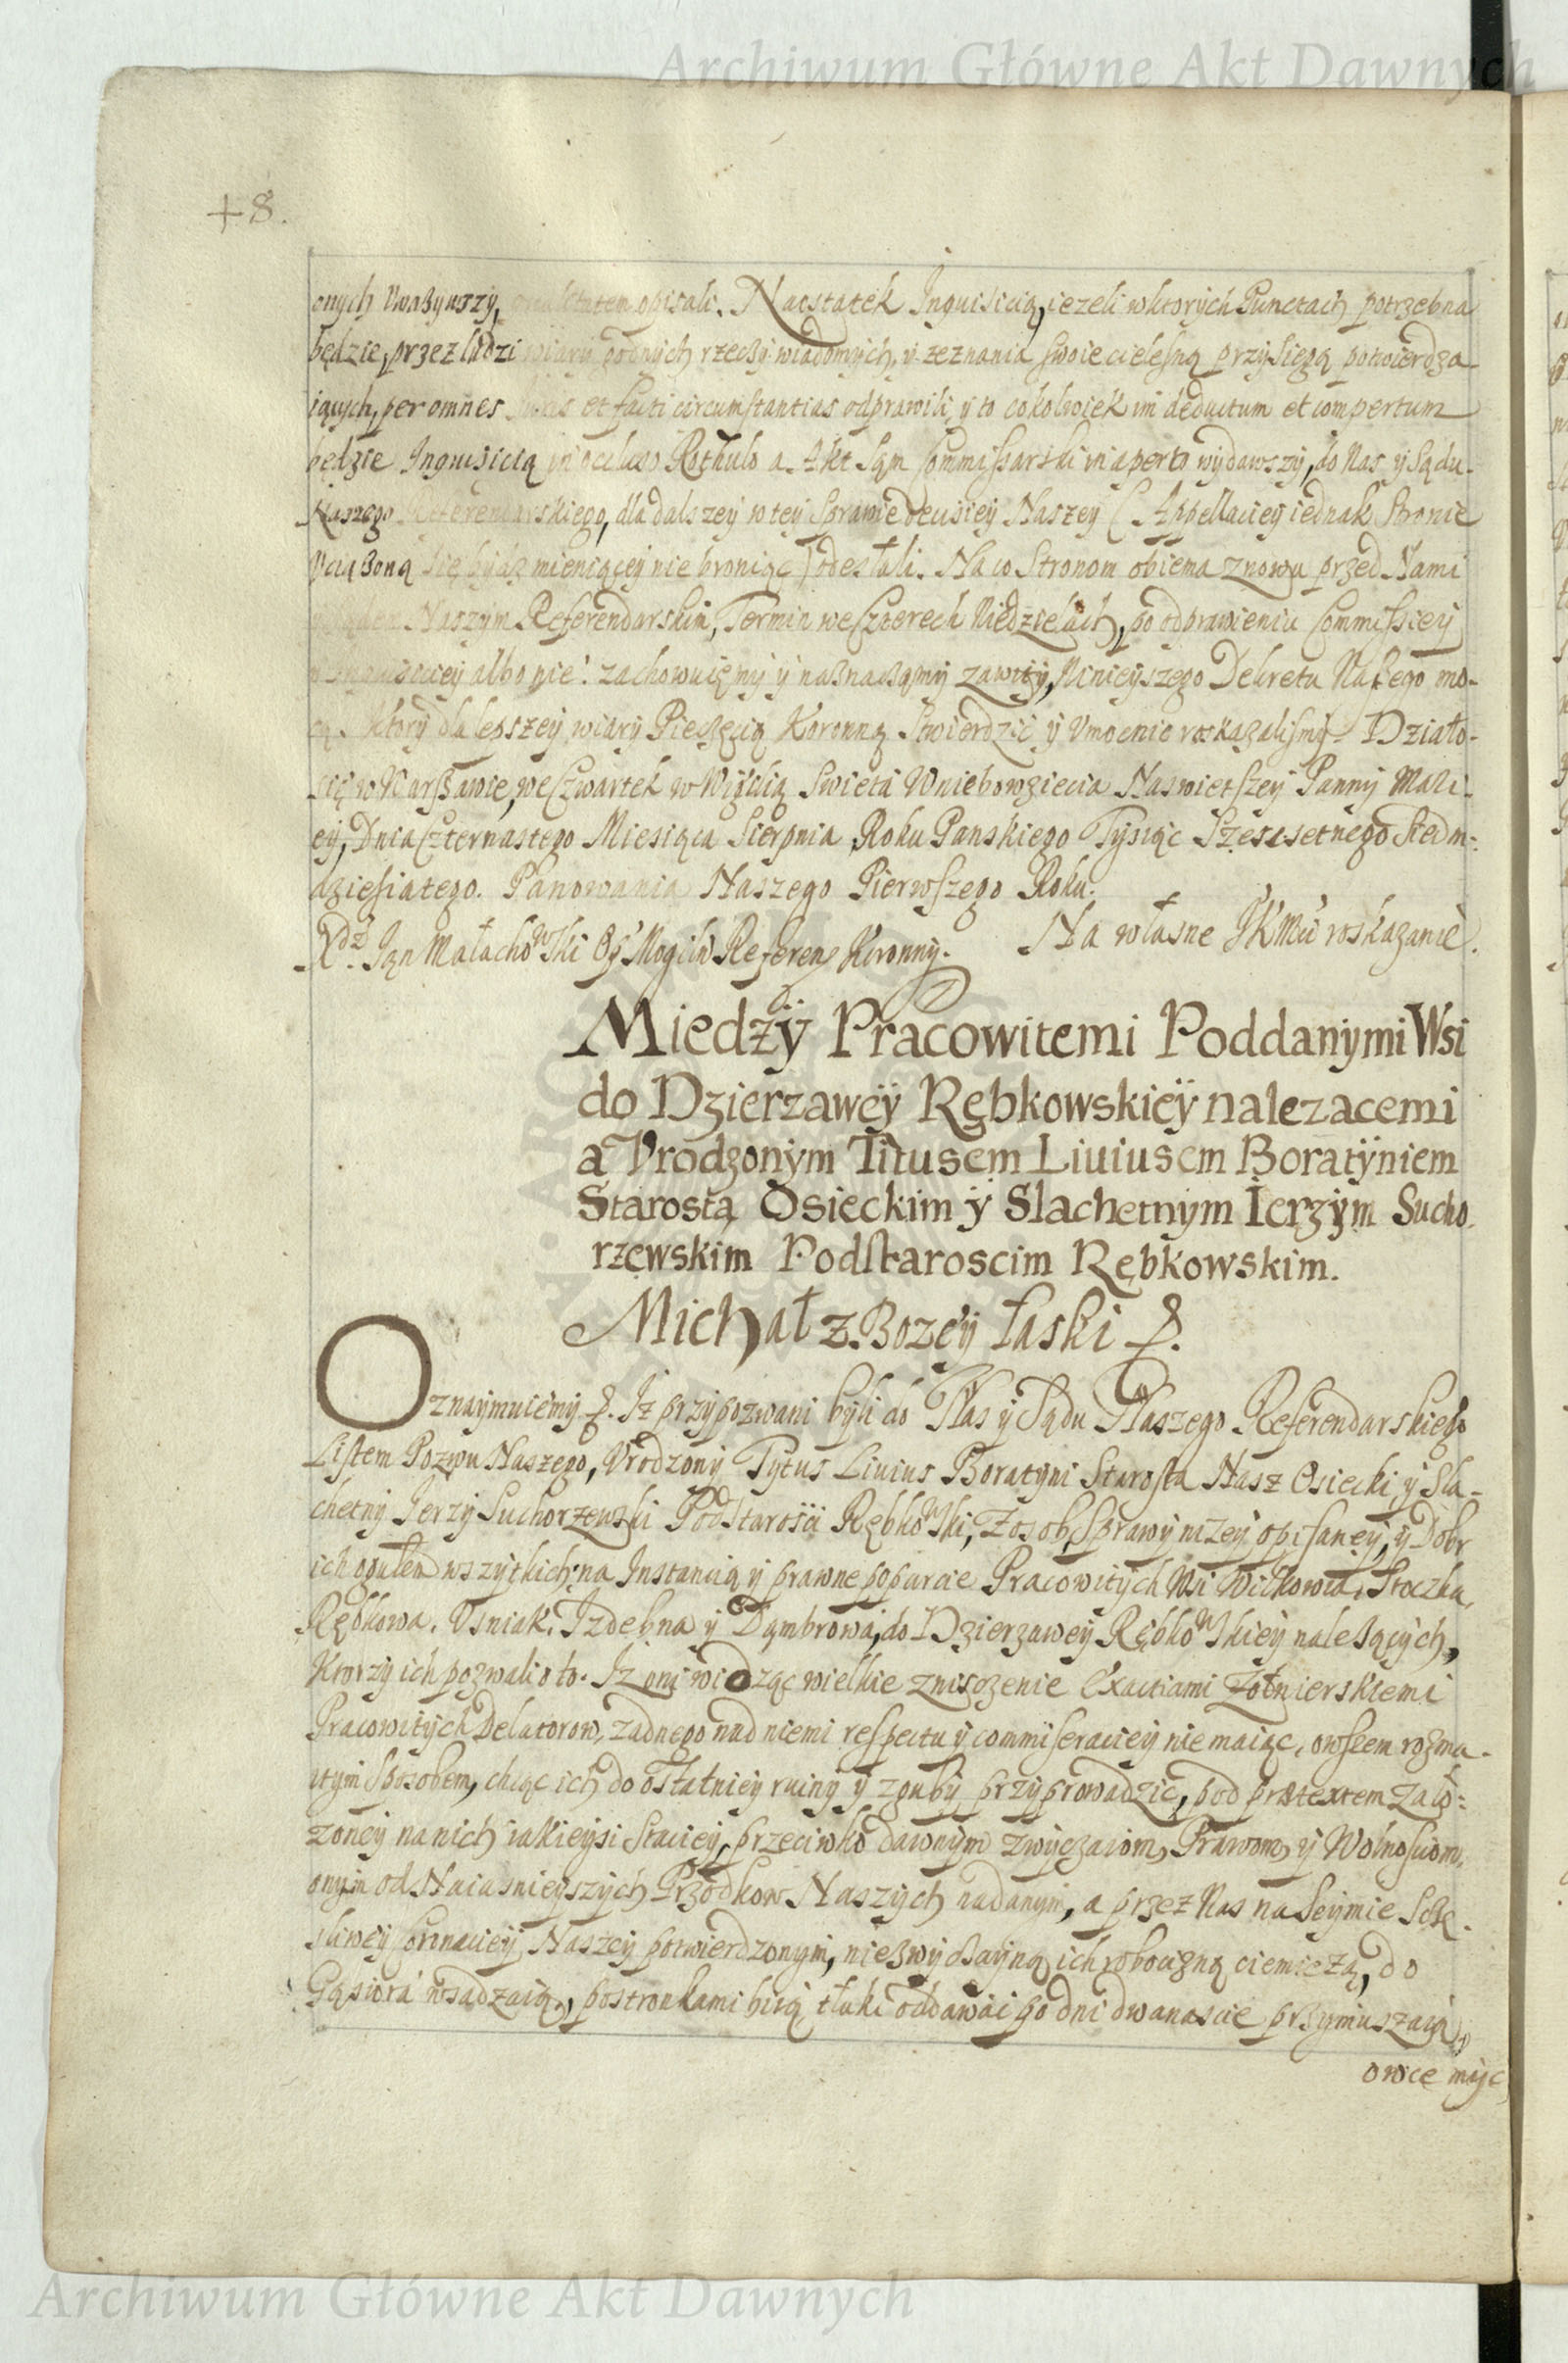 Archiwum Główne Akt Dawnych
48.
onych uważywszy, qualitatem opisali. Naostatek Inquisicią, ieżeli w ktorych Punctach potrzebna
będzie, przez ludzi wiary godnych rzeczy wiadomych, y zeznania swoie cielesną przysięgą potwierdza
iących, per omnes iuris et facti circumstantias odprawili, y to cokolwiek im deductum et compertum
będzie Inquisicią in occluso Rothulo a Akt sąm Commissarski in aperto wydawszy, do Nas y Sądu
Naszego Referendarskiego, dla dalszey w tey Sprawie decisiey Naszey (Appellaciey iednak Stronie
Uciążoną się bydz mieniącey nie broniąc) odesłali. Na co Stronom obiema znowu przed Nami
Naszym Referendarskim, Termin we Czterech Niedzielach, po odprawieniu Commissiey
albo nie: zachowuięmy y naznaczamy zawity, Ninieyszego Dekretu Naszego mo-
cą. Ktory dla lepszey wiary Pieczęcią Koronną Stwierdzić y Umocnić roskazalismy. Działo-
się w Warszawie, we Czwartek w Wigilią Swieta Wniebowzięcia Naswietszey Panny Mari-
ey, Dnia Czternastego Miesiąca Sierpnia Roku Panskiego Tysiąc Szescsetnego Siedm-
dziesiatego. Panowania Naszego Pierwszego Roku.
Jan Małachowski Referen Koronny. Na własne JKMci roskazanie.
Miedzy Pracowitemi Poddanymi Wsi
do Dzierzawey Rębkowskiey nalezacemi
a Vrodzonym Titusem Liuiusem Boratyniem
Starostą Osieckim y Slachetnym Ierzym Sucho
rzewskim Podstaroscim Rębkowskim.
Michał z Bozey łaski &.
Oznaymuiemy &. Iż przypozwani byli do Nas y Sądu Naszego Referendarskiego
Listem Pozwu Naszego, Vrodzony Tytus Liuius Boratyni Starosta Nasz Osiecki y Sla-
chetny Jerzy Suchorzewski Podstarosci Rębkowski, Z osob, Sprawy nizey opisaney, y Dobr
ich ogułem wszytkich, na Instancią y prawne poparcie Pracowitych Wsi Wilkowia, Stoczka,
Rębkowa, Usniak, Izdebna y Dąmbrowa, do Dzierzawey Rębkowskiey należących,
Ktorzy ich pozwali o to. Iż oni widząc wielkie zniszczenie Exactiami Zołnierskiemi
Pracowitych Delatorow, zadnego nad niemi respectu y commiseraciey nie maiąc, owszem rozma-
itym sposobem, chcąc ich do ostatniey ruiny y zguby przyprowadzić, pod prætextem zało-
zoney na nich iakieysi Staciey, przeciwko dawnym zwyczaiom, Prawom, y Wolnosciom,
onym od Naiasnieyszych Przodkow Naszych nadanym, a przez Nas na Seymie Sczę-
sliwey Coronaciey Naszey potwierdzonym, niezwyczayną ich robocizną ciemiężą, do
Gąsiora wsadzaią, postronkami biią, tłuki oddawać po dni dwanascie przymuszaią,
owce myc
Archiwum Główne Akt Dawnych